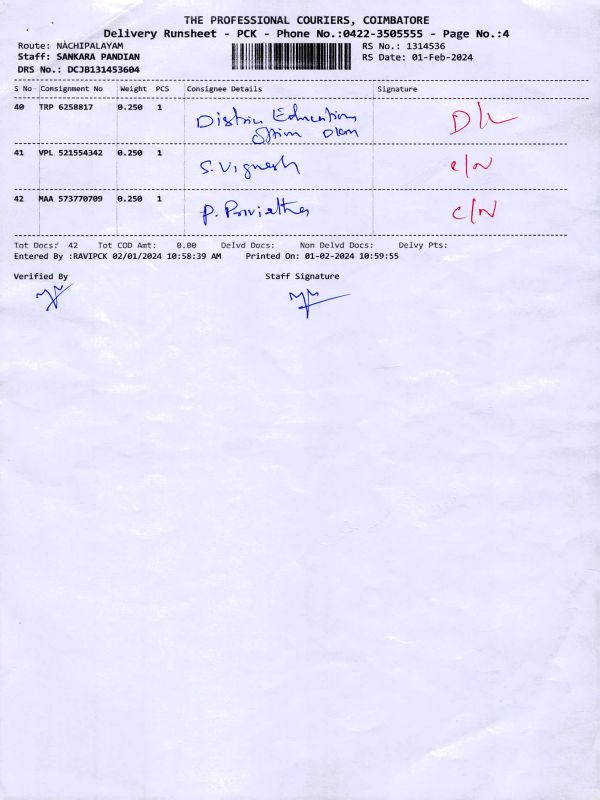 THE PROFESSIONAL COURIERS, COIMBATORE
Delivery Runsheet - PCK - Phone No.:0422-3505555 - Page No.:4
Route: NACHIPALAYAM RS No.: 1314536
Staff: SANKARA PANDIAN RS Date: 01-Feb-2024
DRS No.: DCJB131453604
S No Consignment No Weight PCS Consignee Details Signature
40 TRP 6258817 0.250 1 District Education
41 VPL 521554342 0.250 1 S. Vignesh C/N
42 MAA 573770709 0.250 1 P. C/N
Tot Docs: 42 Tot COD Amt: 0.00 Delvd Docs: Non Delvd Docs: Delvy Pts:
Entered By :RAVIPCK 02/01/2024 10:58:39 AM Printed On: 01-02-2024 10:59:55
Verified By Staff Signature